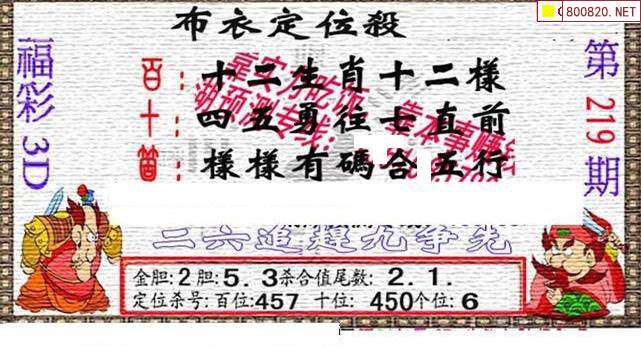 800820.NET
布衣定位殺
福彩3D
第219期
百:十二生肖十二樣
十:四五勇往七直前
個:樣樣有碼合五行
二六追趕九争先
金胆:2胆:5.3杀合值尾数:2.1.
定位杀号:百位:457 十位:450个位:6